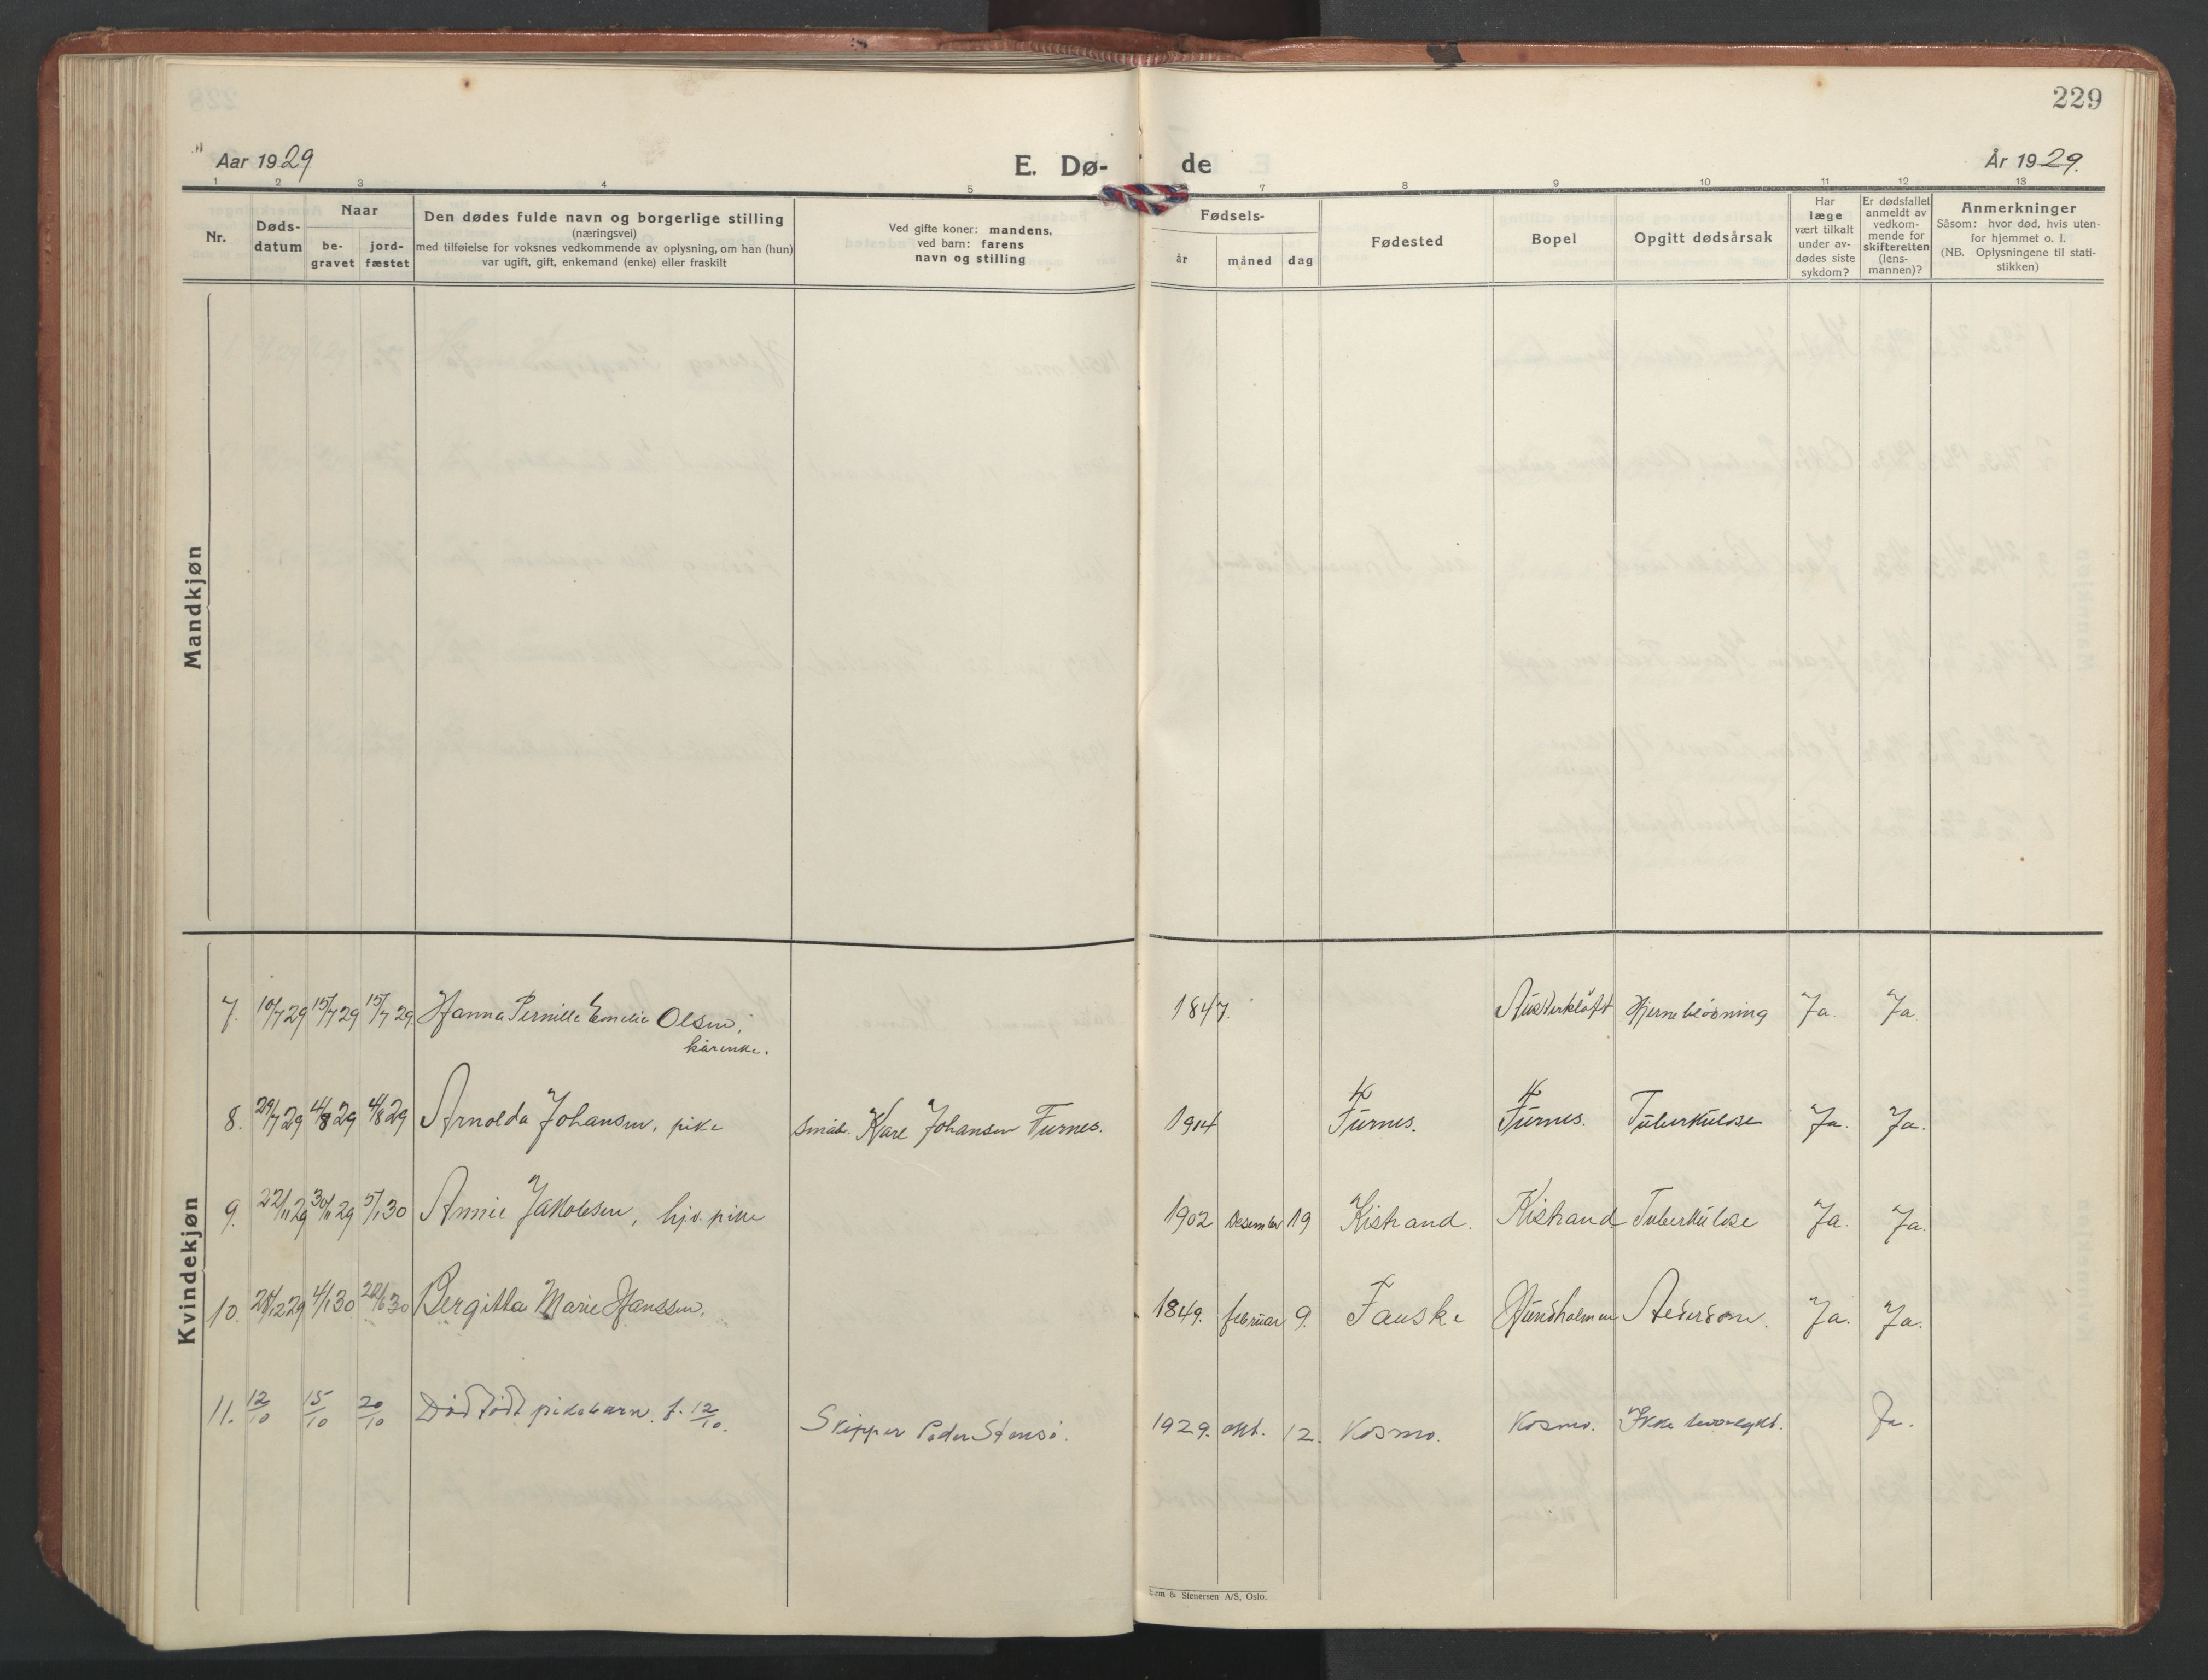 229
Aar 1929
E. Dø-
de
År 1929.
1 2 3 4 5 7 8 9 10 11 12 13
Nr.
Døds-
datum
Naar
be-
gravet
jord-
fæstet
Den dødes fulde navn og borgerlige stilling
(næringsvei)
med tilføielse for voksnes vedkommende av oplysning, om han (hun)
var ugift, gift, enkemand (enke) eller fraskilt
Ved gifte koner: mandens,
ved barn: farens
navn og stilling
Fødsels-
år
måned
dag
Fødested
Bopel
Opgitt dødsårsak
Har
læge
vært tilkalt
under av-
dødes siste
sykdom?
Er dødsfallet
anmeldt av
vedkom-
mende for
skifteretten
(lens-
mannen)?
Anmerkninger
Såsom: hvor død, hvis uten-
for hjemmet o. l.
(NB. Oplysningene til stati-
stikken)
Mandkjøn
Kvindekjøn
7. 10/7 29 15/7 29 15/7 29. Hanna Pernille Emelie Olsen, 1847. Austerkløft Hjerneblødning Ja. Ja.
kårenke.
8. 29/7 29 4/8 29 4/8 29 Arnolda Johansen, pike småb. Karl Johansen Furnes. 1914 Furnes. Furnes. Tuberkulose Ja. Ja.
9. 22/11 29 30/11 29 5/1 30 Annie Jakobsen, hjv. pike 1902 Desember 19 Kistrand. Kistrand Tuberkulose Ja. Ja.
10. 28/12 29 4/1 30 22/6 30 Bergitta Marie Hanssen. 1849. februar 9. Fauske Hundholmen Alderdom. Ja. Ja.
11. 12/10 15/10 20/10 Dødfødt pikebarn f. 12/10. Skipper Peder Stensø. 1929. okt. 12. Kosmo. Kosmo. Ikke Ja.
& Stenersen A/S, Oslo.